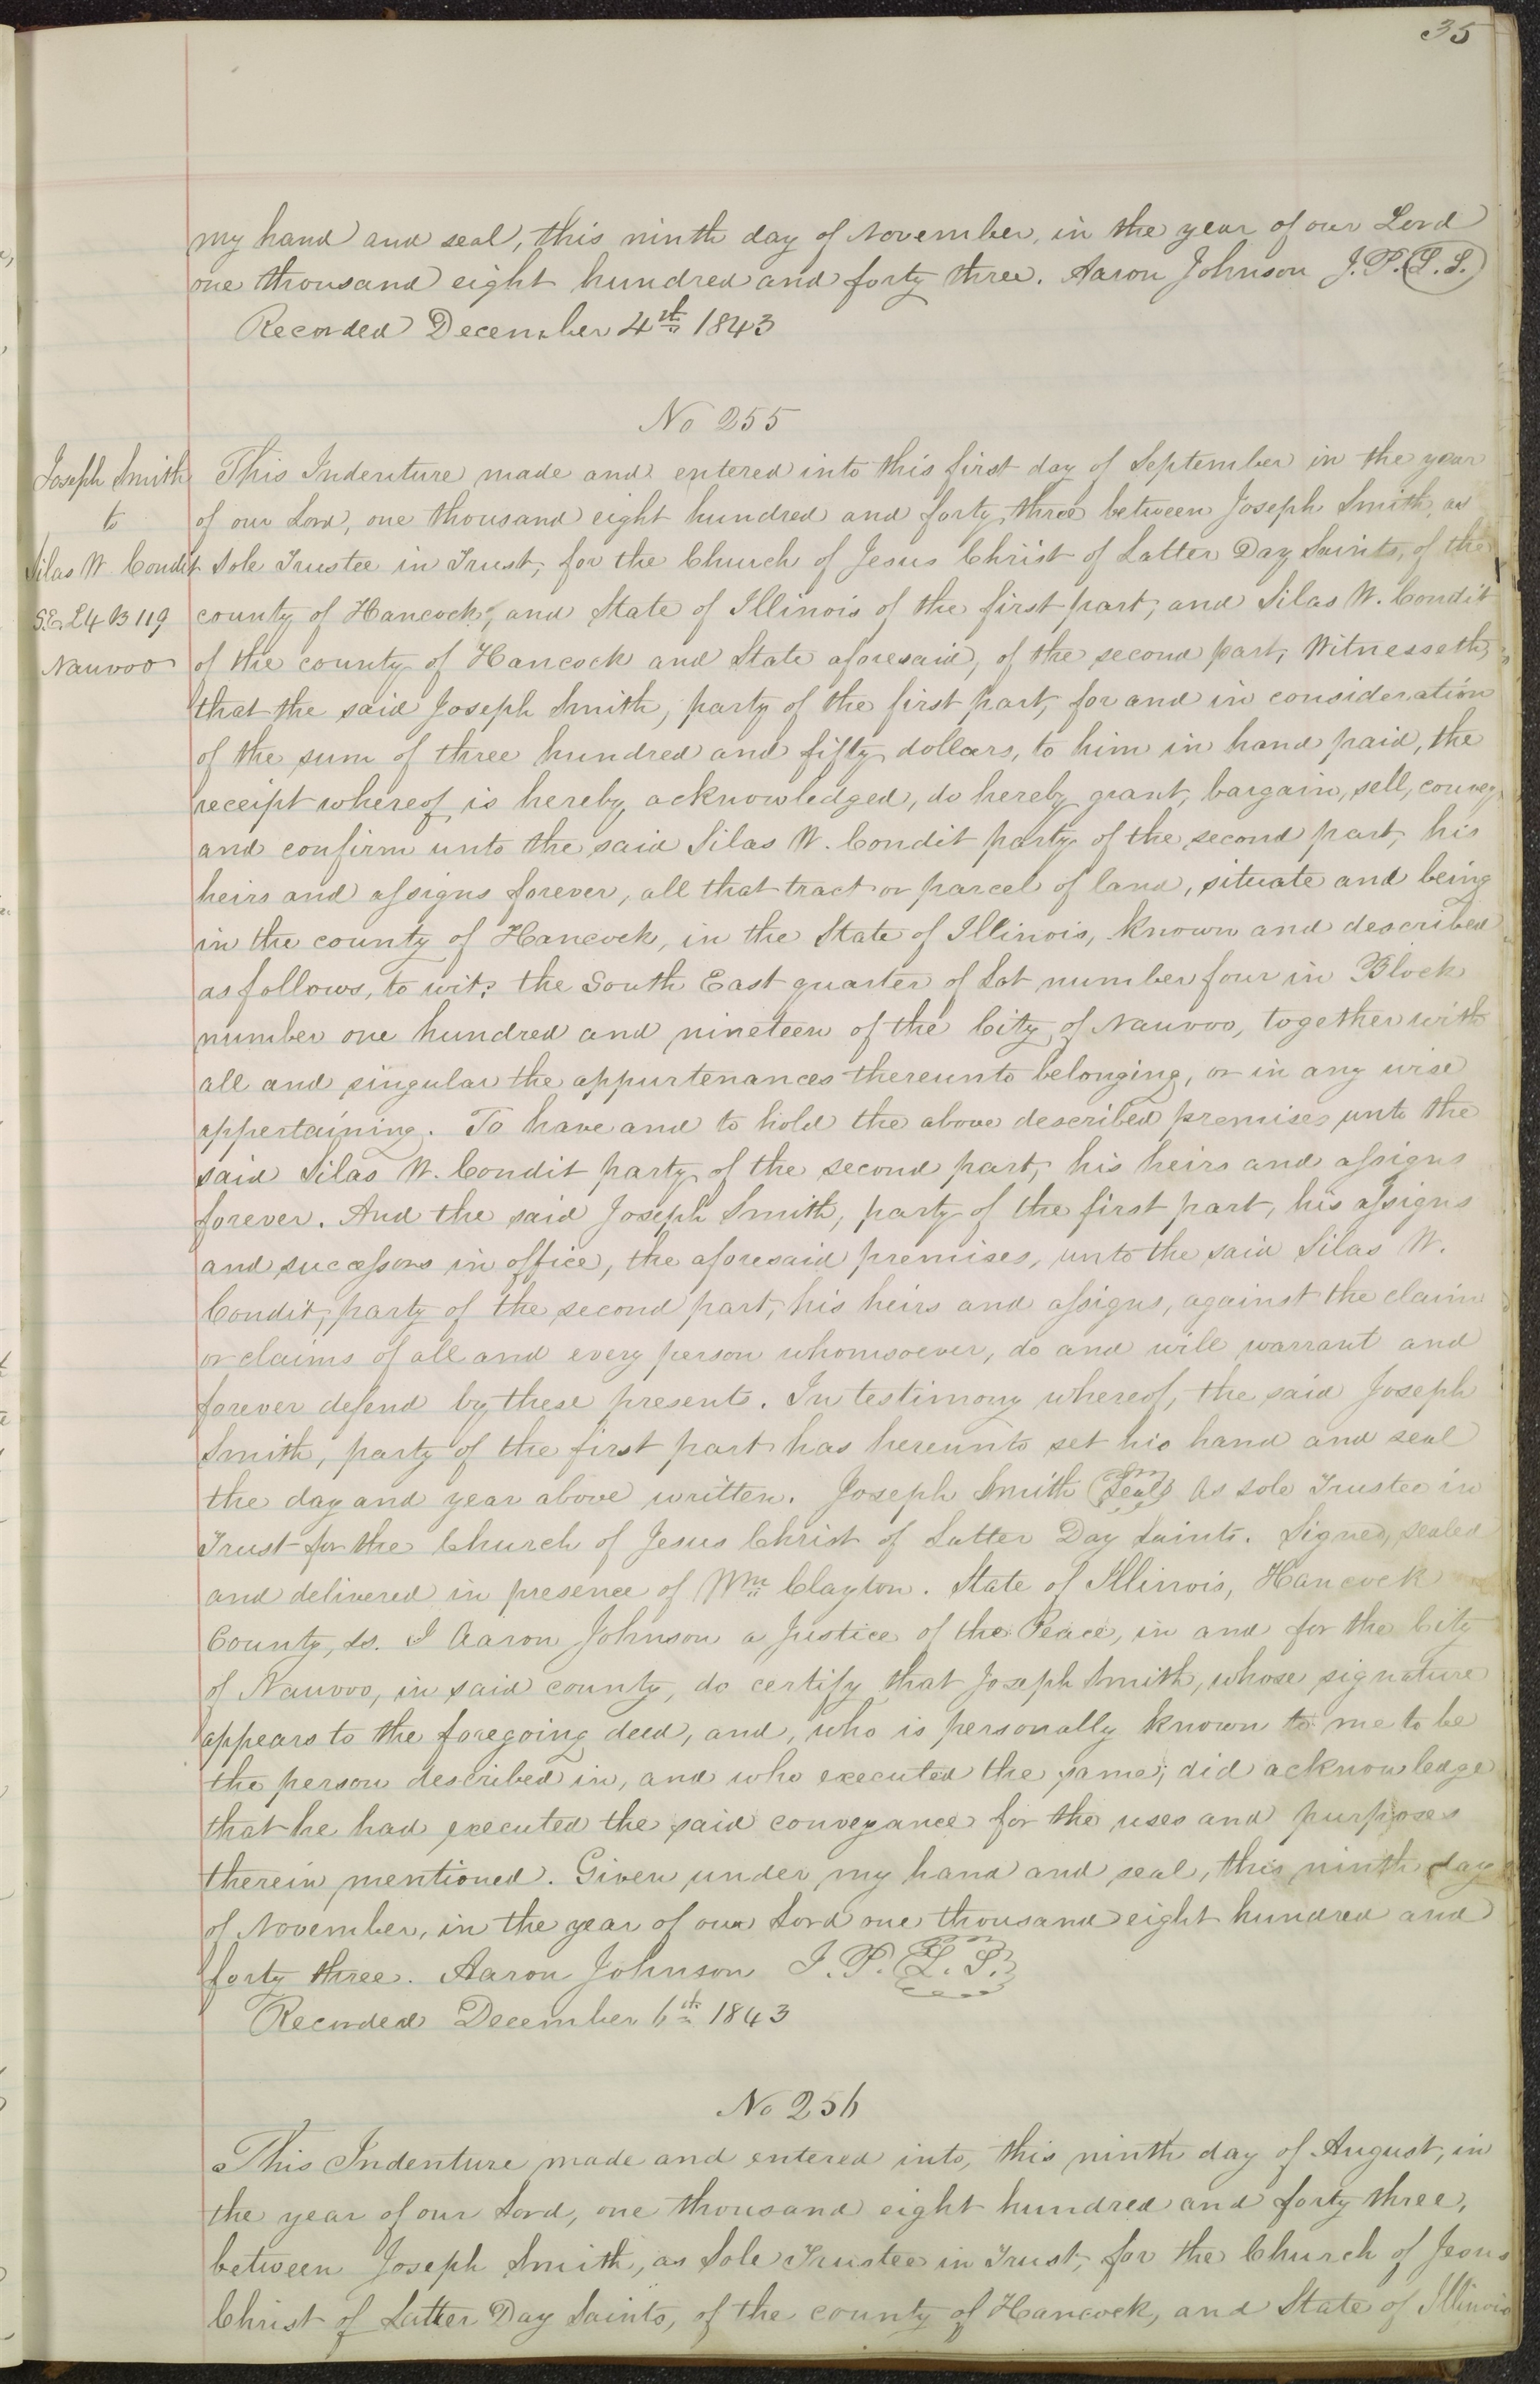 35
my hand and seal, this ninth day of November, in the year of our Lord
one thousand eight hundred and forty three. Aaron Johnson J.P. (L.S.)
Recorded December 4th 1843
No 255
Joseph Smith
to
Silas W. Condit
S.E. L4 B 119
Nauvoo
This Indenture made and entered into this first day of September in the year
of our Lord, one thousand eight hundred and forty three between Joseph Smith, as
Sole Trustee in Trust, for the Church of Jesus Christ of Latter Day Saints, of the
county of Hancock, and State of Illinois of the first part, and Silas W. Condit
of the county of Hancock and State aforesaid, of the second part, Witnesseth,
that the said Joseph Smith, party of the first part, for and in consideration
of the sum of three hundred and fifty dollars, to him in hand paid, the
receipt whereof is hereby acknowledged, do hereby grant, bargain, sell, convey
and confirm unto the said Silas W. Condit party of the second part, his
heirs and assigns forever, all that tract or parcel of land, situate and being
in the county of Hancock, in the State of Illinois, known and described
as follows, to wit: the South East quarter of Lot number four in Block
number one hundred and nineteen of the City of Nauvoo, together with
all and singular the appurtenances thereunto belonging, or in any wise
appertaining. To have and to hold the above described premises unto the
said Silas W. Condit party of the second part, his heirs and assigns
forever. And the said Joseph Smith, party of the first part, his assigns
and successors in office, the aforesaid premises, unto the said Silas W.
Condit, party of the second part, his heirs and assigns, against the claim
or claims of all and every person whomsoever, do and will warrant and
forever defend by these presents. In testimony whereof, the said Joseph
Smith, party of the first part has hereunto set his hand and seal
the day and year above written. Joseph Smith (Seal) As Sole Trustee in
Trust for the Church of Jesus Christ of Latter Day Saints. Signed, sealed
and delivered in presence of Wm Clayton. State of Illinois, Hancock
County, ss. I Aaron Johnson a Justice of the Peace, in and for the City
of Nauvoo, in said county, do certify that Joseph Smith, whose signature
appears to the foregoing deed, and, who is personally known to me to be
the person described in, and who executed the same; did acknowledge
that he had executed the said conveyance for the uses and purposes
therein mentioned. Given under my hand and seal, this ninth day
of November, in the year of our Lord one thousand eight hundred and
forty three. Aaron Johnson J.P. (L.S.)
Recorded December 6th 1843
No 256
This Indenture made and entered into, this ninth day of August, in
the year of our Lord, one thousand eight hundred and forty three,
between Joseph Smith, as Sole Trustee in Trust, for the Church of Jesus
Christ of Latter Day Saints, of the county of Hancock, and State of Illinois